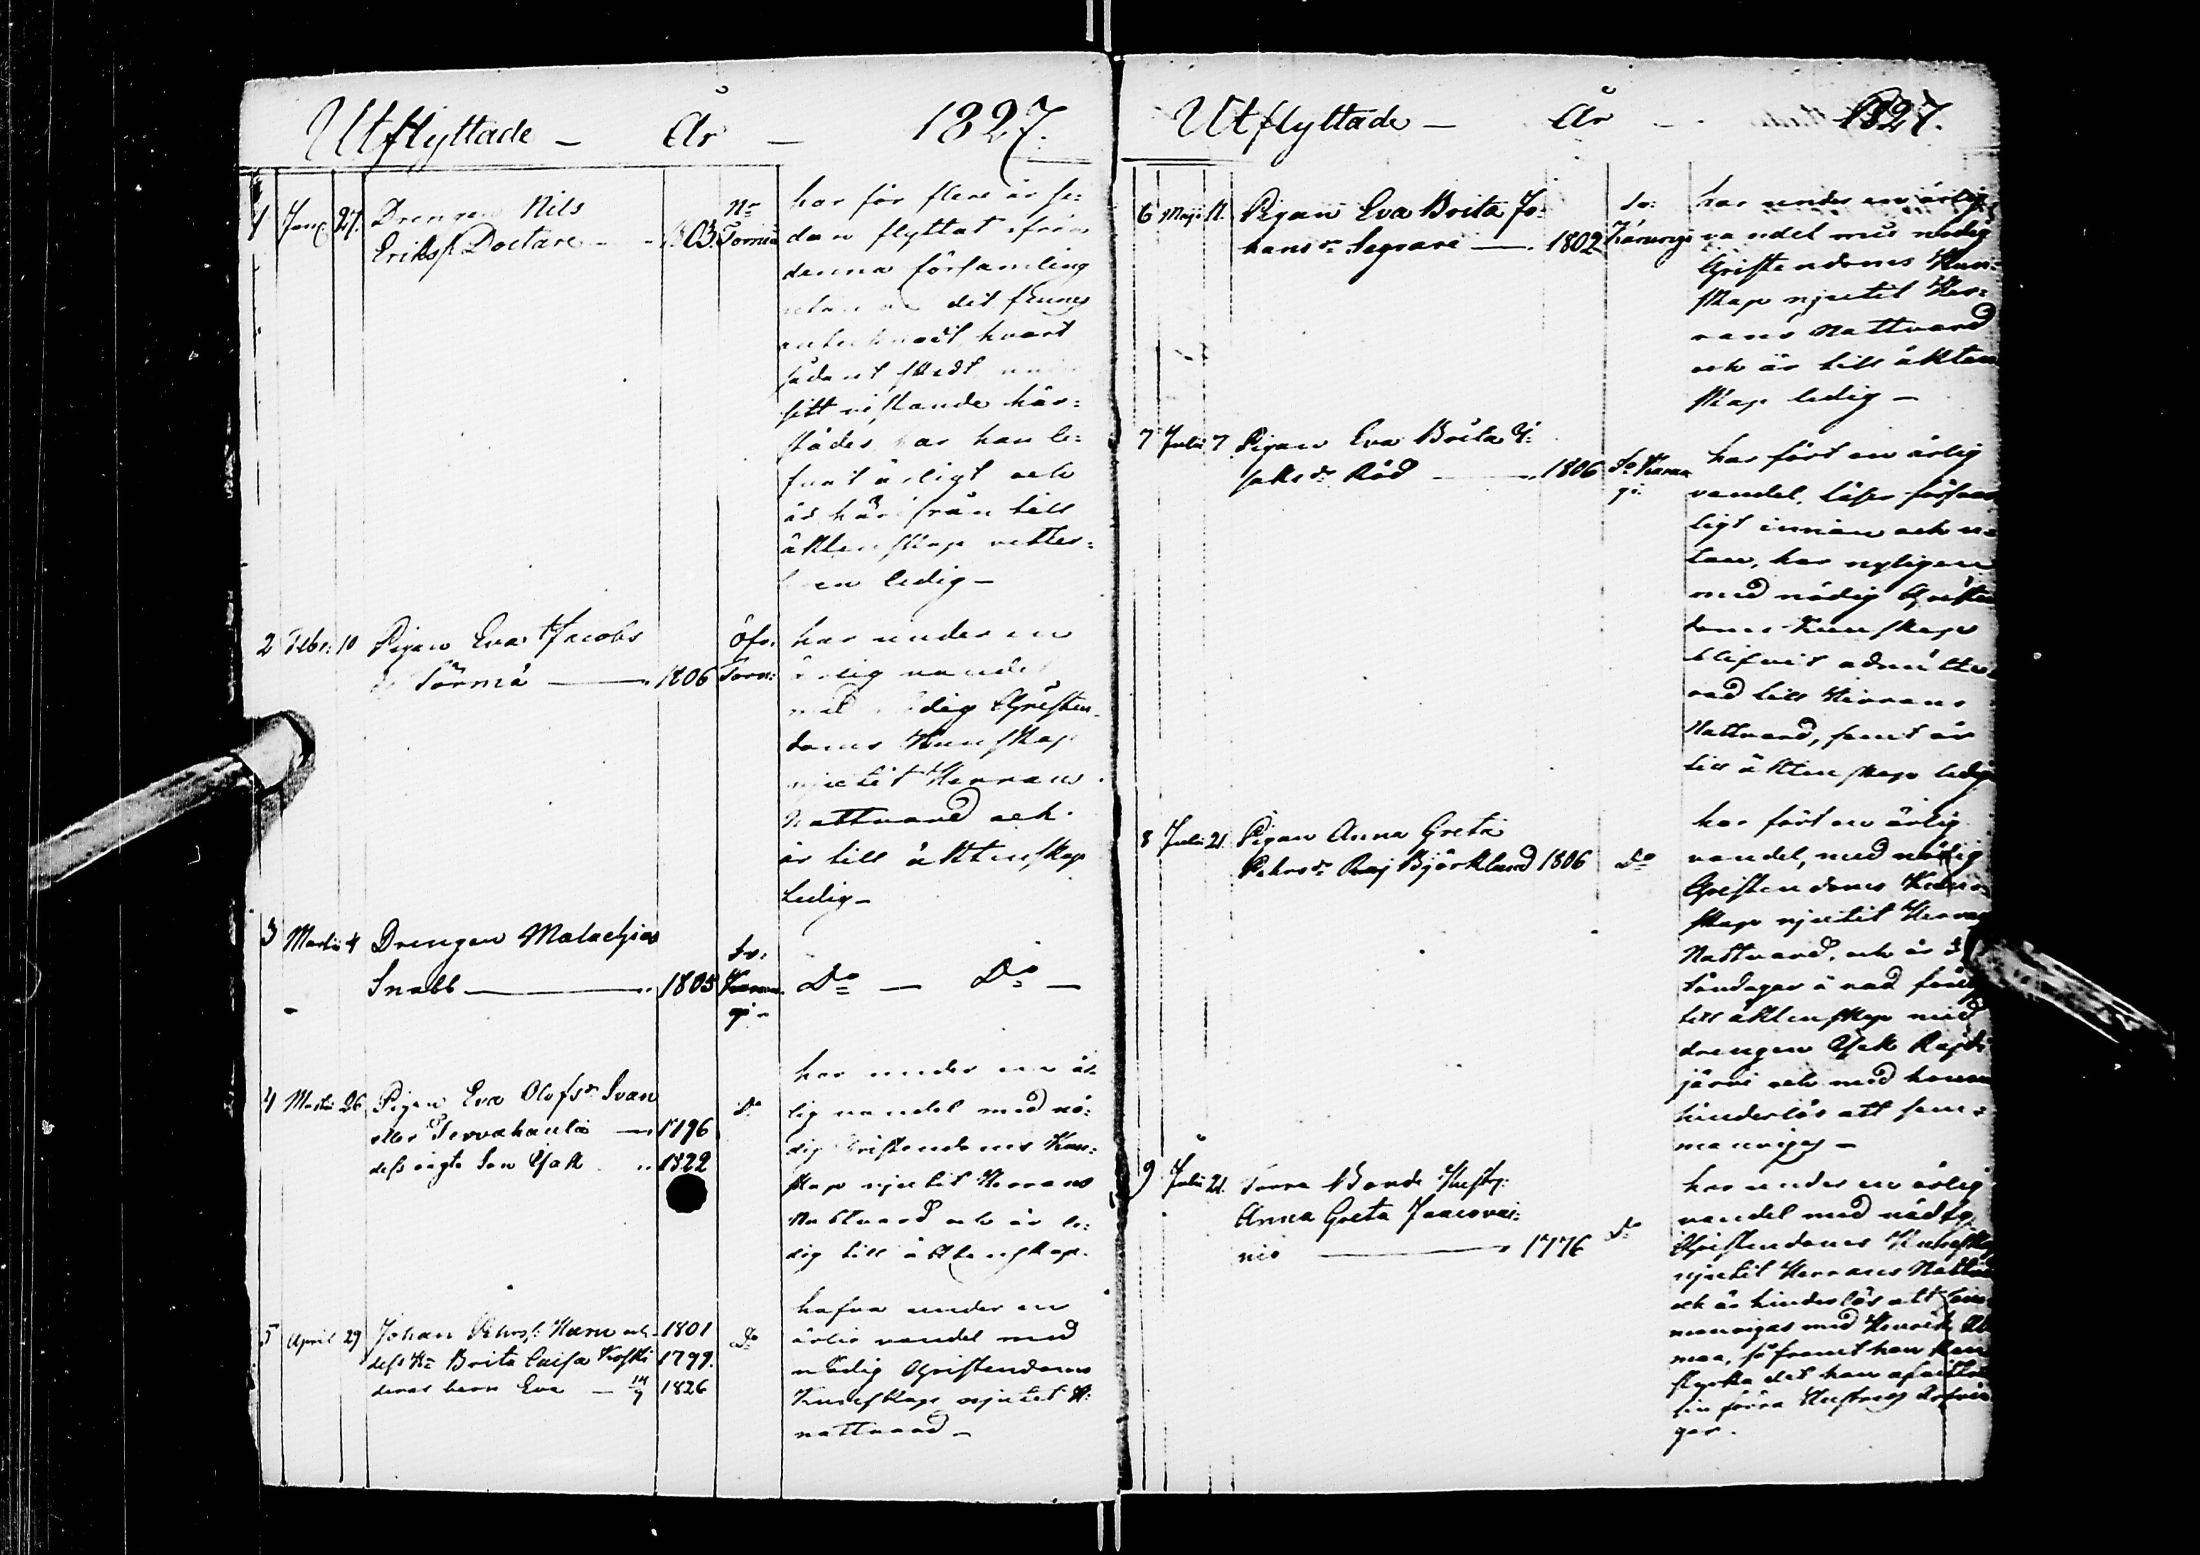 Utflyttade - År - 1827.
1 Janr. 27. Drengen Nils
Eriks. Doctare - 1803. Nr Torneå
har för flere år se=
dan flyttat ifrån
denna församling
utan det finnes
antecknadt hvart
sådant skedt
sitt vistande här=
städes, har han le=
fvat ärligt och
är härifrån till
äktenskap vetter=
en ledig -
2 Febr. 10 Pigan Eva Jacobs
dr Törmä - 1806 Öfr. Torn:
har under en
ärlig vandel
med nödig Christen
doms Kunskap
njutit Herrans
Nattvard och
är till äktenskap
ledig -
3 Martii 4 Drengen Malachias
Snabb - 1805
Do - Do -
4 Martii 26 Pigan Eva Olofsdr Svan
eller Tervahauta - 1796 Do
dess oägta Son Isak 1822
har under en är
lig vandel med nö=
dig Christendoms Kun=
skap njutit Herrans
Nattvard och är le=
dig till äktenskap.
5 April 29 Johan Pehrs. Harn och 1801 Do
dess Hu Brita Caisa Koski 1799.
deras barn Eva - 14/7 1826
hafva under en
ärlig vandel med
nödig Christendoms
Kunskap njutit H:
nattvard -
Utflyttade - År - 1827.
6 Maji 11. Pigan Eva Brita Jo=
hansdr Segrare - 1802 Karungi
har under en ärlig
vandel med nödig
Christendoms Kun=
skap njutit Her=
rans Nattvard
och är till äkten
skap ledig -
7 Julii 7 Pigan Eva Brita I=
saksdr Röd - 1806
har fört en ärlig
vandel, läser försvar
ligt innan och u=
tan, har nyligen
med nödig Christen
doms Kunskap
blifvit admitte
rad till Herrans
Nattvard, samt är
till äktenskap ledig
8 Julii 21. Pigan Anna Greta
Pehrsdr Raj Björklund 1806 Do
har fört en ärlig
vandel, med nödig
Christendoms Kun
skap njutit Herrans
Nattvard, och är
söndagar å rad
till äktenskap med
drengen Isak
järvi och med honom
hinderlös att sam=
manvigas -
9 Julii 21. Torra Bonde Hustr:
Anna Greta
nio - 1776 Do
har under en ärlig
vandel med nödig
Christendoms Kunskap
njutit Herrans Nattvard
och är hinderlös att sam
manvigas med Henrik
maa, så framt han kan
styrka det han
sin förra Hustrus
gar.